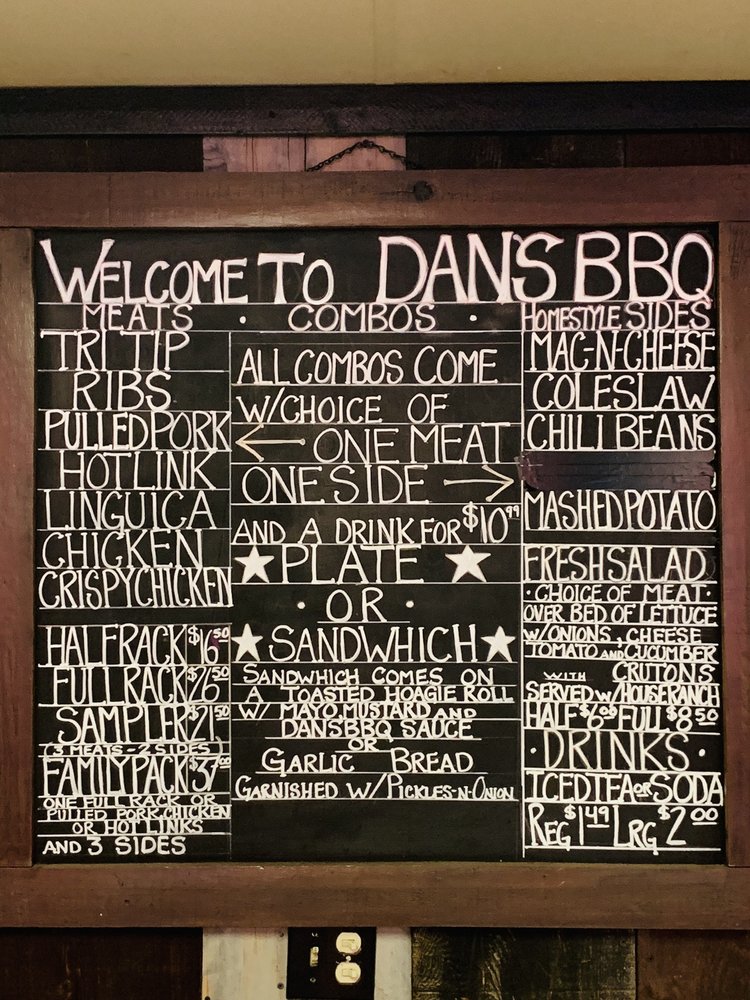 WELCOME TO DAN'S BBQ
MEATS · COMBOS · HOMESTYLE SIDES
TRI TIP
RIBS
PULLED PORK
HOT LINK
LINGUICA
CHICKEN
CRISPY CHICKEN
HALF RACK $16.50
FULL RACK $26.50
SAMPLER $21.50
(3 MEATS - 2 SIDES)
FAMILY PACK $37.00
ONE FULL RACK OR
PULLED PORK, CHICKEN
OR HOT LINKS
AND 3 SIDES
ALL COMBOS COME
W/CHOICE OF
← ONE MEAT
ONE SIDE →
AND A DRINK FOR $10.99
★ PLATE ★
· OR ·
★ SANDWHICH ★
SANDWHICH COMES ON
A TOASTED HOAGIE ROLL
W/ MAYO, MUSTARD AND
DANSBBQ SAUCE
OR
GARLIC BREAD
GARNISHED W/PICKLES-N-ONION
MAC-N-CHEESE
COLESLAW
CHILI BEANS
MASHED POTATO
FRESH SALAD
·CHOICE OF MEAT·
OVER BED OF LETTUCE
W/ONIONS, CHEESE
TOMATO AND CUCUMBER
WITH CRUTONS
SERVED W/HOUSE RANCH
HALF $6.00 FULL $8.50
·DRINKS·
ICED TEA OR SODA
REG $1.49 LRG $2.00